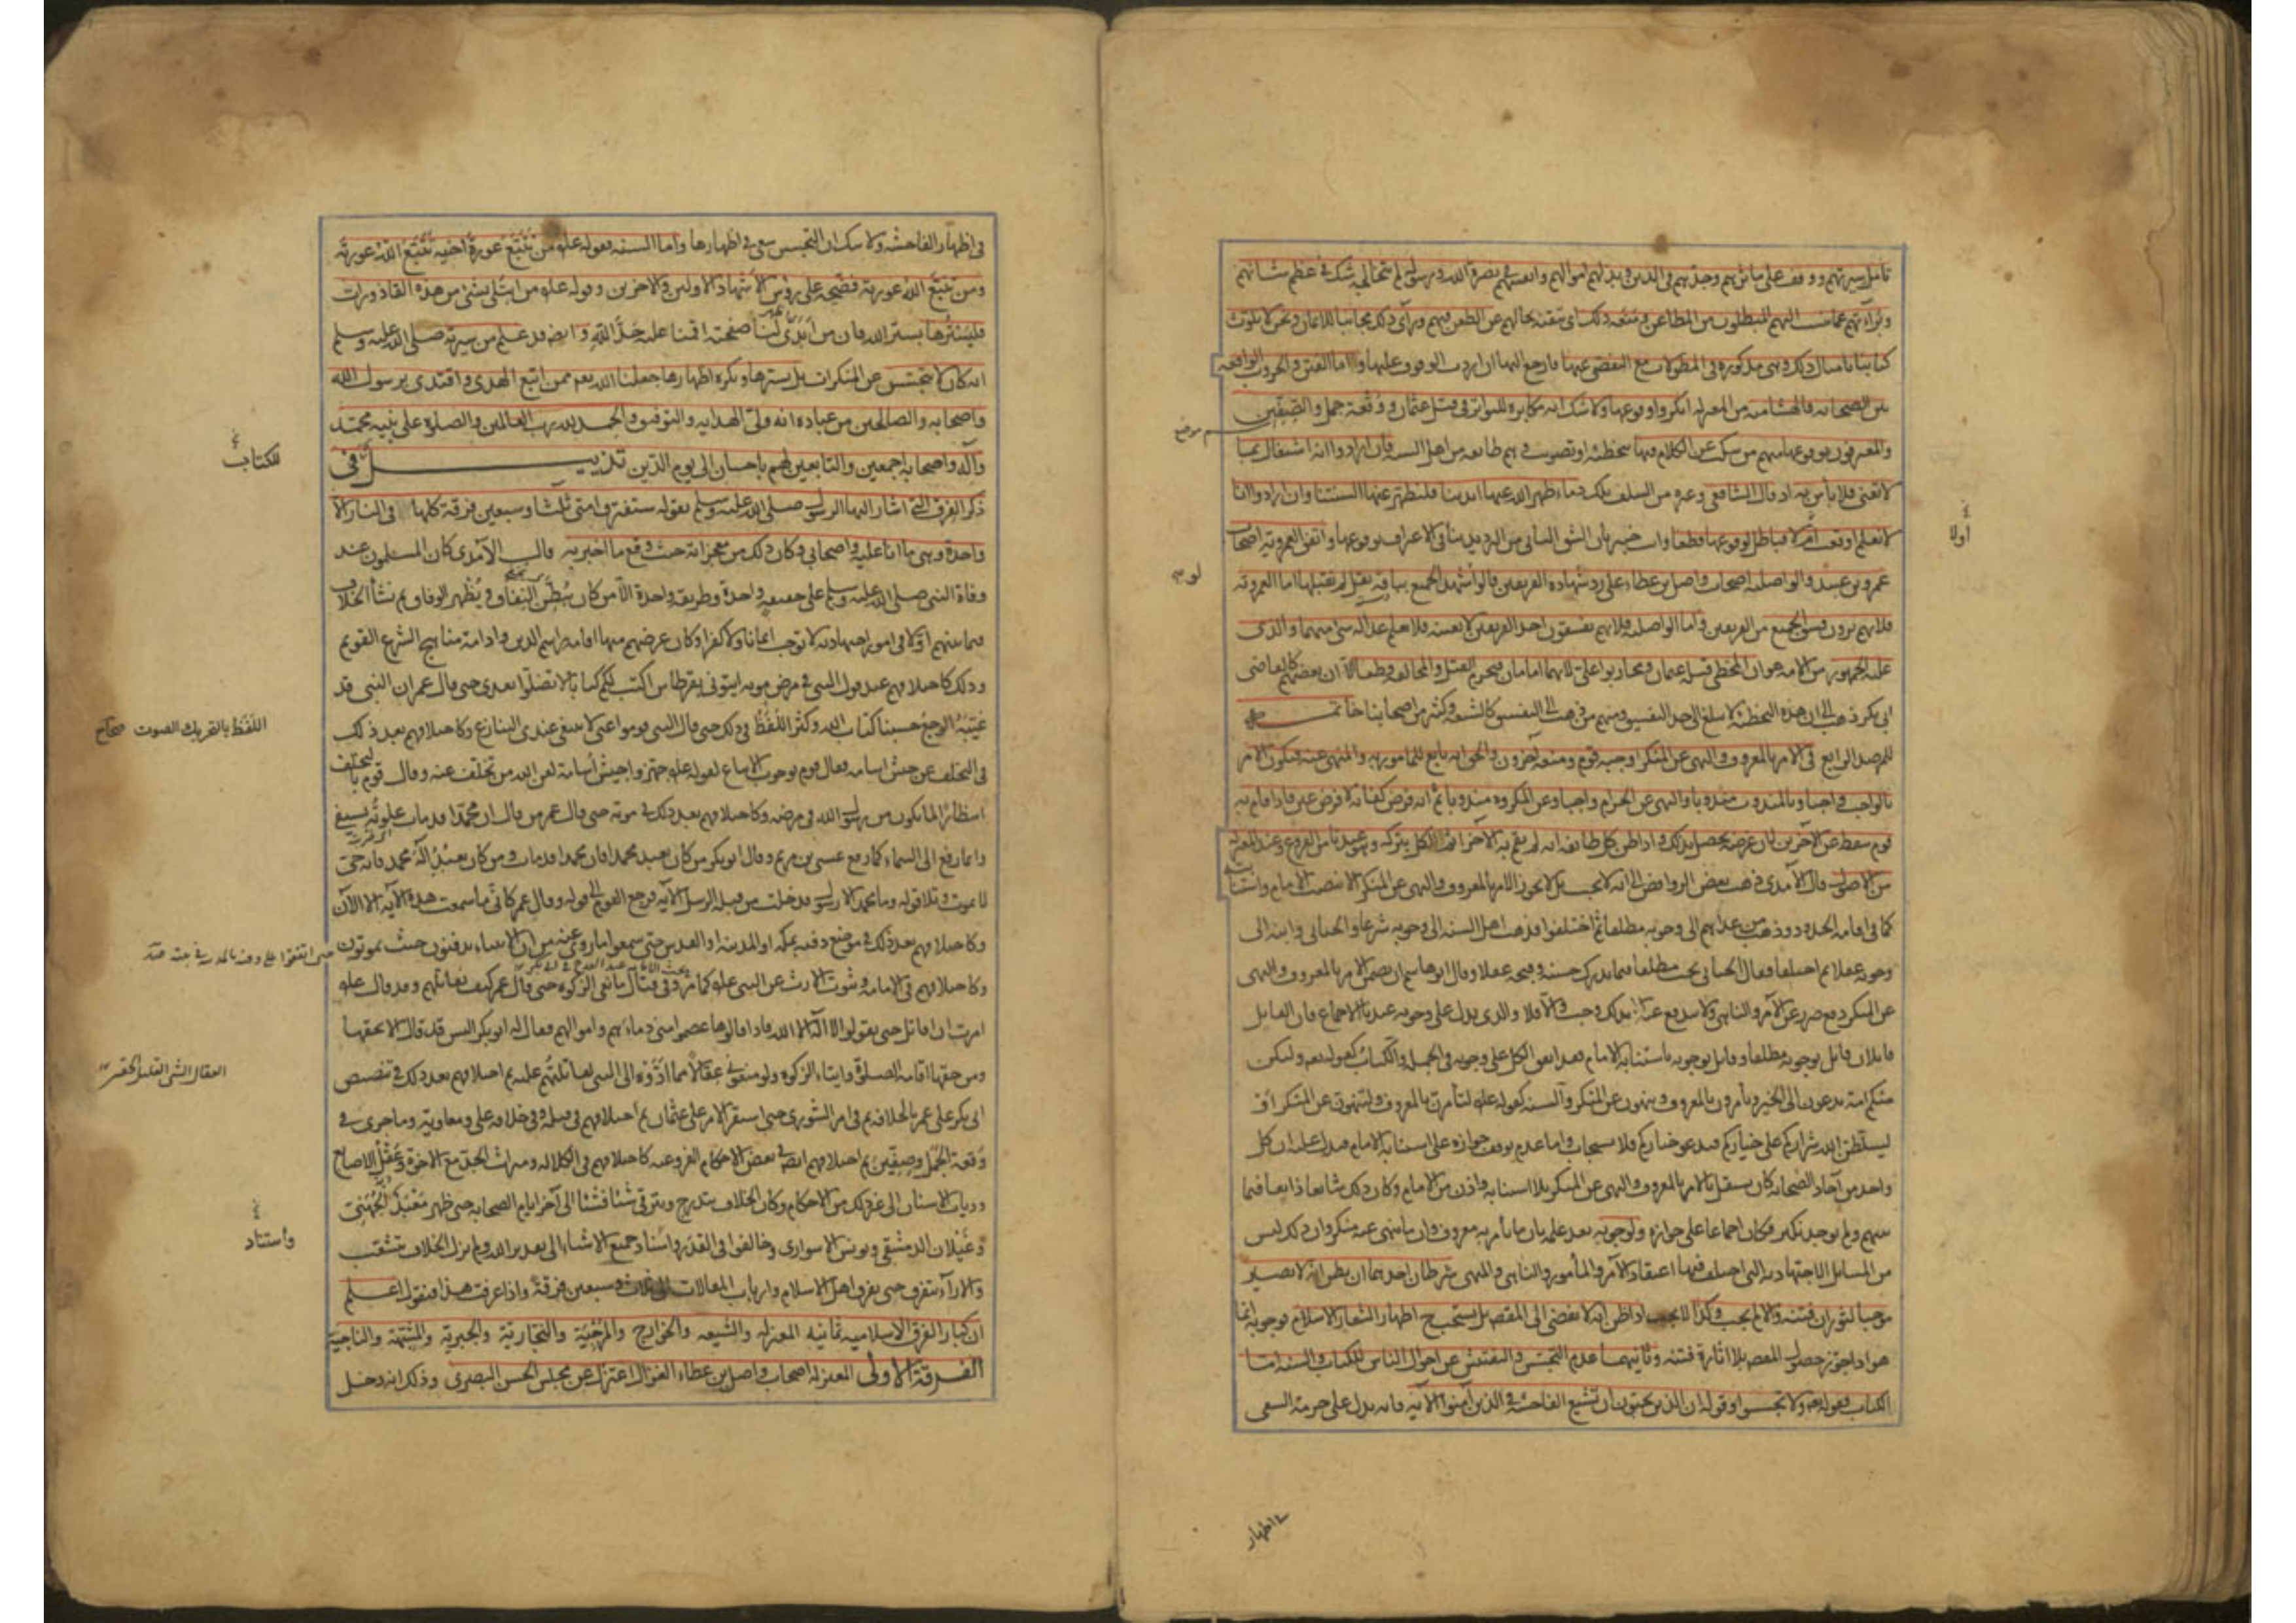 تأمل سيرتهم ووقف على مآثرهم وجدهم في الدين وبذلهم اموالهم وانفسهم في نصرة الله ورسوله لم يتخالجه شك في عظم شانهم
وبراءتهم عما ينسب اليهم المبطلون من المطاعن ومنعه ذلك اى تيقنه بحالهم عن الطعن فيهم ورأى ذلك مجانبا للايمان ونحن لا نلوث
كتابنا بامثال ذلك وهى مذكورة في المطولات مع التفصى عنها فارجع اليها ان اردت الوقوف عليها واما الفتن والحروب الواقعة
بين الصحابه فالهشامية من المعتزله انكروا وقوعها ولا شك انه مكابرة للتواتر في قتل عثمان ووقعة جمل والصفين
والمعترفون بوقوعها منهم من سكت عن الكلام فيها بتخطئة او تصويب وهم طائفه من اهل السنه فان ارادوا انه اشتغال بما
لا يعنى فلا بأس به اذ قال الشافعى وغيره من السلف تلك دماء طهر الله عنها ايدينا فلنطهر عنها السنتنا وان ارادوا انا
لا نعلم اوقعت ام لا فباطل لوقوعها قطعا وانت خبير بان الشق الثانى من الترديد ينافى الاعتراف بوقوعها واتفق العمروية اصحاب
عمرو بن عبيد والواصليه اصحاب واصل بن عطاء على رد شهادة الفريقين قالوا لو شهد الجميع بباقة بقل لم نقبلها اما العمروية
فلانهم يرون فسق الجميع من الفريقين واما الواصليه فلانهم يفسقون احد الفريقين لا بعينه فلا يعلم عدالة شئ منهما والذى
عليه الجمهور من الامه هو ان المخطئ قتلة عثمان ومحاربوا على لانهما امامان فيحرم القتل والمخالفة قطعا الا ان بعضهم كالقاضى
ابى بكر ذهب الى ان هذه التخطئة لا تبلغ الى حد التفسيق ومنهم من ذهب الى التفسيق كالشيعه وكثير من اصحابنا خاتمة
المرصد الرابع في الامر بالمعروف والنهى عن المنكر اوجبه قوم ومنعه آخرون والحق انه تابع للمأمور به والمنهى عنه فيكون الامر
بالواجب واجبا وبالمندوب مندوبا والنهى عن الحرام واجبا وعن المكروه مندوبا ثم انه فرض كفاية لا فرض عين فاذا قام به
قوم سقط عن الآخرين لان غرضه يحصل بذلك واذا ظن كل طائفه انه لم يقم به الآخر اثم الكل بتركه وهو عندنا من الفروع وعند المعتزله
من الاصول قال الآمدى ذهب بعض الروافض الى انه لا يجب بل لا يجوز الامر بالمعروف والنهى عن المنكر الا بنصب الامام واستنابته
كما في اقامة الحدود وذهب من عداهم الى وجوبه مطلقا ثم اختلفوا فذهب اهل السنه الى وجوبه شرعا والجبائى وابنه الى
وجوبه عقلا ثم اختلفا فقال الجبائى يجب مطلقا فيما يدرك حسنه وقبحه عقلا وقال ابو هاشم ان تضمن الامر بالمعروف والنهى
عن المنكر دفع ضرر عن الآمر والناهى ولا يندفع عنه الا بذلك وجب والا فلا والذى يدل على وجوبه عندنا الاجماع فان القائل
قائلان قائل بوجوبه مطلقا وقائل بوجوبه باستنابة الامام فقد اتفق الكل على وجوبه في الجملة والكتاب كقوله تعالى ولتكن
منكم امة يدعون الى الخير ويأمرون بالمعروف وينهون عن المنكر والسنه كقوله عليه لتأمرن بالمعروف ولتنهون عن المنكر او
ليسلطن الله شراركم على خياركم فيدعو خياركم فلا يستجاب واما عدم توقف جوازه على استنابة الامام فيدل عليه ان كل
واحد من آحاد الصحابه كان يستقل بالامر بالمعروف والنهى عن المنكر بلا استنابه واذن من الامام وكان ذلك شائعا ذائعا فيما
بينهم ولم يوجد نكير فكان اجماعا على جوازه ولوجوبه بعد علمه بان ما يأمر به معروف وان ما ينهى عنه منكر وان ذلك ليس
من المسائل الاجتهاديه التى اختلف فيها اعتقاد الآمر والمأمور والناهى والمنهى شرطان احدهما ان يظن انه لا يصير
موجبا لثوران فتنة والا لم يجب وكذا لا يجب اذا ظن انه لا يفضى الى المقصود بل يستحب ح اظهار الشعار الاسلام فوجوبه انما
هو اذا جوز حصول المقصود بلا اثارة فتنة وثانيهما عدم التجسس والتفتيش عن احوال الناس للكتاب والسنه اما
الكتاب فقوله تعالى ولا تجسسوا وقوله ان الذين يحبون ان تشيع الفاحشة في الذين آمنوا الآيه فانه يدل على حرمة السعى
موضع
اولا
في اظهار
في اظهار الفاحشه ولا شك ان التجسس سعى في اظهارها واما السنه فقوله عليه من تتبع عورة اخيه تتبع الله عورته
ومن تتبع الله عورته فضحه على رؤس الاشهاد الاولين والآخرين وقوله عليه من ابتلى بشئ من هذه القاذورات
فليسترها بستر الله فان من ابدى لنا صفحته اقمنا عليه حد الله وايضا قد علم من سيرته صلى الله عليه وسلم
انه كان لا يتجسس عن المنكرات بل يسترها ويكره اظهارها جعلنا الله تعالى ممن اتبع الهدى واقتدى برسول الله
واصحابه والصالحين من عباده انه ولى الهدايه والتوفيق والحمد لله رب العالمين والصلوة على نبيه محمد
وآله واصحابه اجمعين والتابعين لهم باحسان الى يوم الدين تذييل في
ذكر الفرق التى اشار اليها الرسول صلى الله عليه وسلم بقوله ستفترق امتى ثلثا وسبعين فرقة كلها في النار الا
واحدة وهى ما انا عليه واصحابى وكان ذلك من معجزاته حيث وقع ما اخبر به قال الآمدى كان المسلمون عند
وفاة النبى صلى الله عليه وسلم على عقيدة واحدة وطريقة واحدة الا من كان يبطن النفاق ويظهر الوفاق ثم نشأ الخلاف
فيما بينهم اولا في امور اجتهاديه لا توجب ايمانا ولا كفرا وكان غرضهم منها اقامة مراسم الدين وادامة مناهج الشرع القويم
وذلك كاختلافهم عند قول النبى في مرض موته ايتونى بقرطاس اكتب لكم كتابا لا تضلوا بعدى حتى قال عمر ان النبى قد
غلبه الوجع حسبنا كتاب الله وكثر اللغط في ذلك حتى قال النبى قوموا عنى لا ينبغى عندى التنازع وكاختلافهم بعد ذلك
في التخلف عن جيش اسامه فقال قوم بوجوب الاتباع لقوله عليه جهزوا جيش اسامة لعن الله من تخلف عنه وقال قوم بالتخلف
انتظارا لما يكون من رسول الله في مرضه وكاختلافهم بعد ذلك في موته حتى قال عمر من قال ان محمدا قد مات علوته بسيفى
وانما رفع الى السماء كما رفع عيسى بن مريم وقال ابو بكر من كان يعبد محمدا فان محمدا قد مات ومن كان يعبد اله محمد فانه حى
لا يموت وتلا قوله وما محمد الا رسول قد خلت من قبله الرسل الآيه فرجع القوم الى قوله وقال عمر كأنى ما سمعت هذه الآيه الا الآن
وكاختلافهم بعد ذلك في موضع دفنه بمكه او المدينه او القدس حتى سمعوا ما روى عنه من ان الانبياء يدفنون حيث يموتون
وكاختلافهم في الامامه وثبوت الارث عن النبى عليه كما مر وفي قتال مانعى الزكوة حتى قال عمر كيف نقاتلهم وقد قال عليه
امرت ان اقاتل حتى يقولوا لا اله الا الله فاذا قالوها عصموا منى دماءهم واموالهم فقال له ابو بكر اليس قد قال الا بحقها
ومن حقها اقامة الصلوة وايتاء الزكوة ولو منعونى عقالا مما ادوه الى النبى لقاتلتهم عليه ثم اختلافهم بعد ذلك في تنصيص
ابى بكر على عمر بالخلافة ثم في امر الشورى حتى استقر الامر على عثمان ثم اختلافهم في قتله وفي خلافة على ومعاوية وما جرى في
وقعة الجمل وصفين ثم اختلافهم ايضا في بعض الاحكام الفروعيه كاختلافهم في الكلاله وميراث الجد مع الاخوة وعقل الاصابع
وديات الاسنان الى غير ذلك من الاحكام وكان الخلاف يتدرج ويترقى شيئا فشيئا الى آخر ايام الصحابه حتى ظهر معبد الجهنى
وغيلان الدمشقى ويونس الاسوارى وخالفوا في القدر واسناد جميع الاشياء الى تقدير الله ولم يزل الخلاف يتشعب
والآراء يتفرق حتى تفرق اهل الاسلام وارباب المقالات الى ثلث وسبعين فرقة واذا عرفت هذا فنقول اعلم
ان كبار الفرق الاسلاميه ثمانيه المعتزله والشيعه والخوارج والمرجئة والنجارية والجبرية والمشبهة والناجية
الفرقة الاولى المعتزله اصحاب واصل بن عطاء الغزال اعتزل عن مجلس الحسن البصرى وذلك انه دخل
للكتاب
اللغط بالتحريك الصوت صحاح
حتى اتفقوا على دفنه بالمدينة في بيته
العقال الشئ القليل الحقير
واسناد